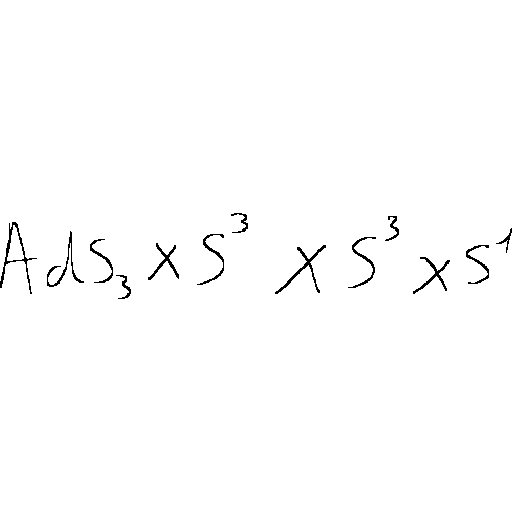 AdS₃ × S³ × S³ × S¹